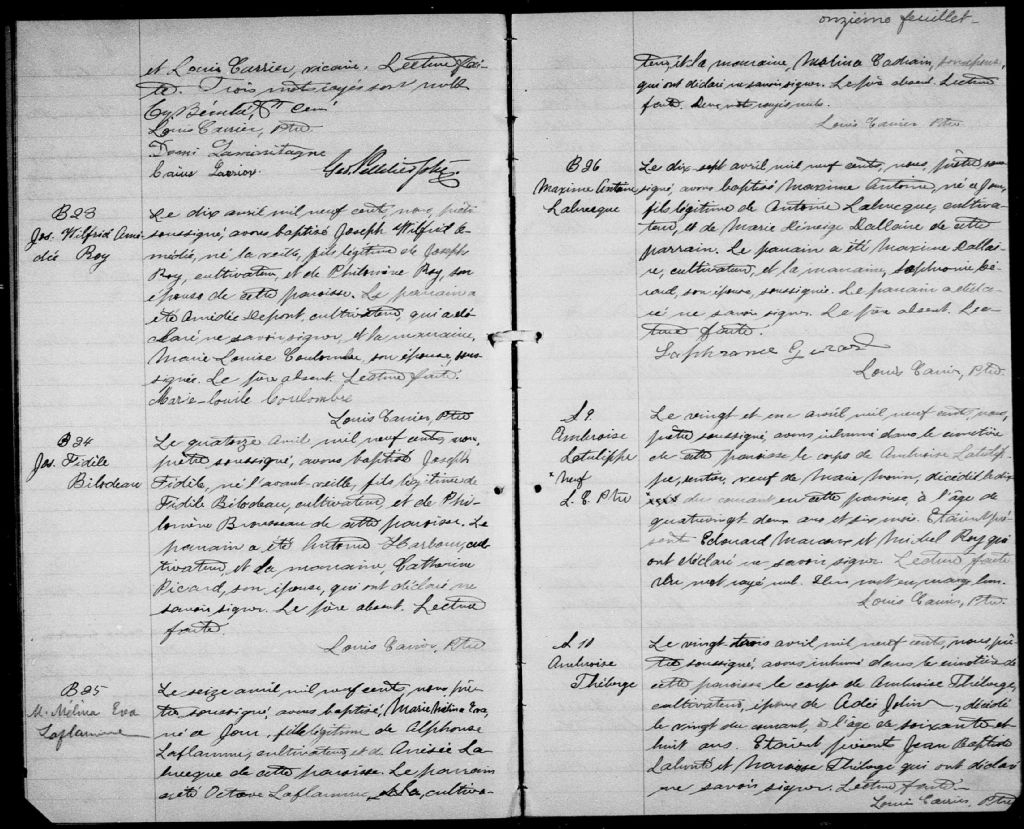 et Louis Carrier, vicaire. Lecture fai-
te. Trois mots rayés sont nuls
Louis Carrier, Ptre
B 23
Jos. Wilfrid Amé-
dée Roy
Le dix avril mil neuf cents, nous, prêtre
soussigné, avons baptisé Joseph Wilfrid A-
médée, né la veille, fils légitime de Joseph
Roy, cultivateur, et de Philomène Roy, son
épouse de cette paroisse. Le parrain a
été Amédée Dupont, cultivateur, qui a dé-
claré ne savoir signer, et la marraine,
Marie Louise Coulombe, son épouse, sous-
signée. Le père absent. Lecture faite.
Marie-louise Coulombe
Louis Carrier, Ptre
B 24
Jos. Fidèle
Bilodeau
Le quatorze avril mil neuf cents, nous,
prêtre soussigné, avons baptisé Joseph
Fidèle, né l'avant-veille, fils légitime de
Fidèle Bilodeau, cultivateur, et de Phi-
lomène Brousseau de cette paroisse. Le
parrain a été Antoine cul-
tivateur, et la marraine, Catherine
Picard, son épouse, qui ont déclaré ne
savoir signer. Le père absent. Lecture
faite.
Louis Carrier, Ptre
B 25
M. Mélina Eva
Laflamme
Le seize avril mil neuf cents, nous prê-
tre soussigné, avons baptisé, Marie Mélina Eva,
né ce jour, fille légitime de Alphonse
Laflamme, cultivateur, et de La-
brecque de cette paroisse. Le parrain
a été Octave Laflamme, et la, cultiva-
onzième feuillet
teur, et la marraine, son épouse,
qui ont déclaré ne savoir signer. Le père absent. Lecture
faite. Deux mots rayés nuls.
Louis Carrier Ptre
B 26
Maxime Antoine
Labrecque
Le dix sept avril mil neuf cents, nous, prêtre sous-
signé, avons baptisé Maxime Antoine, né ce jour,
fils légitime de Antoine Labrecque, cultiva-
teur, et de Marie Dallaire de cette
parrain. Le parrain a été Maxime Dallai-
re, cultivateur, et la marraine, Sophronie Gé-
rard, son épouse, soussignée. Le parrain a décla-
ré ne savoir signer. Le père absent. Lec-
ture faite.
Louis Carrier, Ptre
S 9
Ambroise
Latulippe
x veuf
L. C. Ptre
Le vingt et un avril mil neuf cents, nous,
prêtre soussigné, avons inhumé dans le cimetière
de cette paroisse le corps de Ambroise Latulip-
pe, rentier, veuf de Marie décédé le dix
du courant en cette paroisse, à l'âge de
quatrevingt deux ans et six mois. Etaient pré-
sents Edouard et Michel Roy qui
ont déclaré ne savoir signer. Lecture faite
Un mot rayé nul. Un mot en marge bon.
Louis Carrier, Ptre.
S 10
Ambroise
Théberge
Le vingt trois avril mil neuf cents, nous, prê-
tre soussigné, avons inhumé dans le cimetière de
cette paroisse le corps de Ambroise Théberge,
cultivateur, époux de Adée décédé
le vingt du courant, à l'âge de soixante et
huit ans. Etaient présents Jean Baptiste
et Narcisse Théberge qui ont déclaré
ne savoir signer. Lecture faite.
Louis Carrier, Ptre